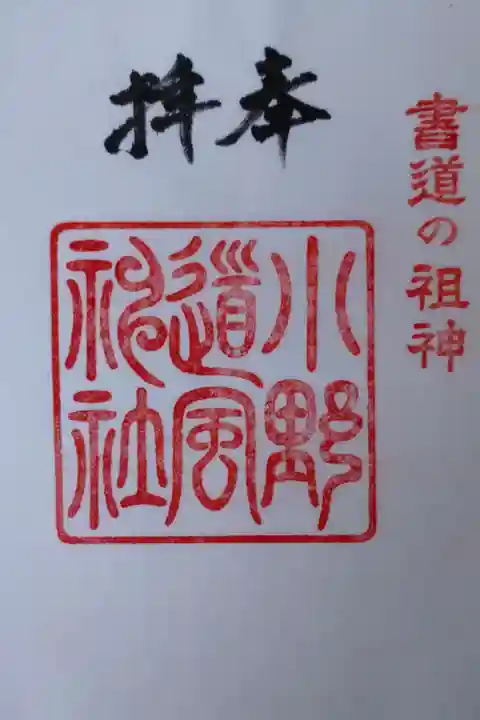 書道の祖神
奉拝
小野
道風
神社